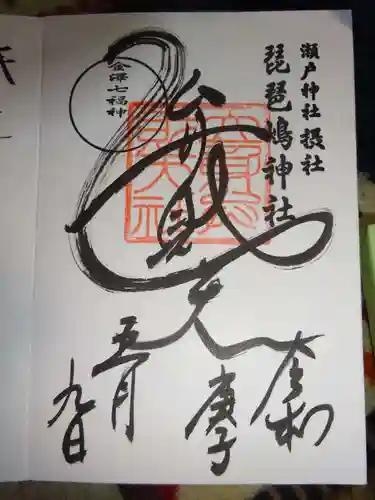 瀬戸神社 摂社
琵琶嶋神社
金澤七福神
弁財天
令和
庚子
五月
九日